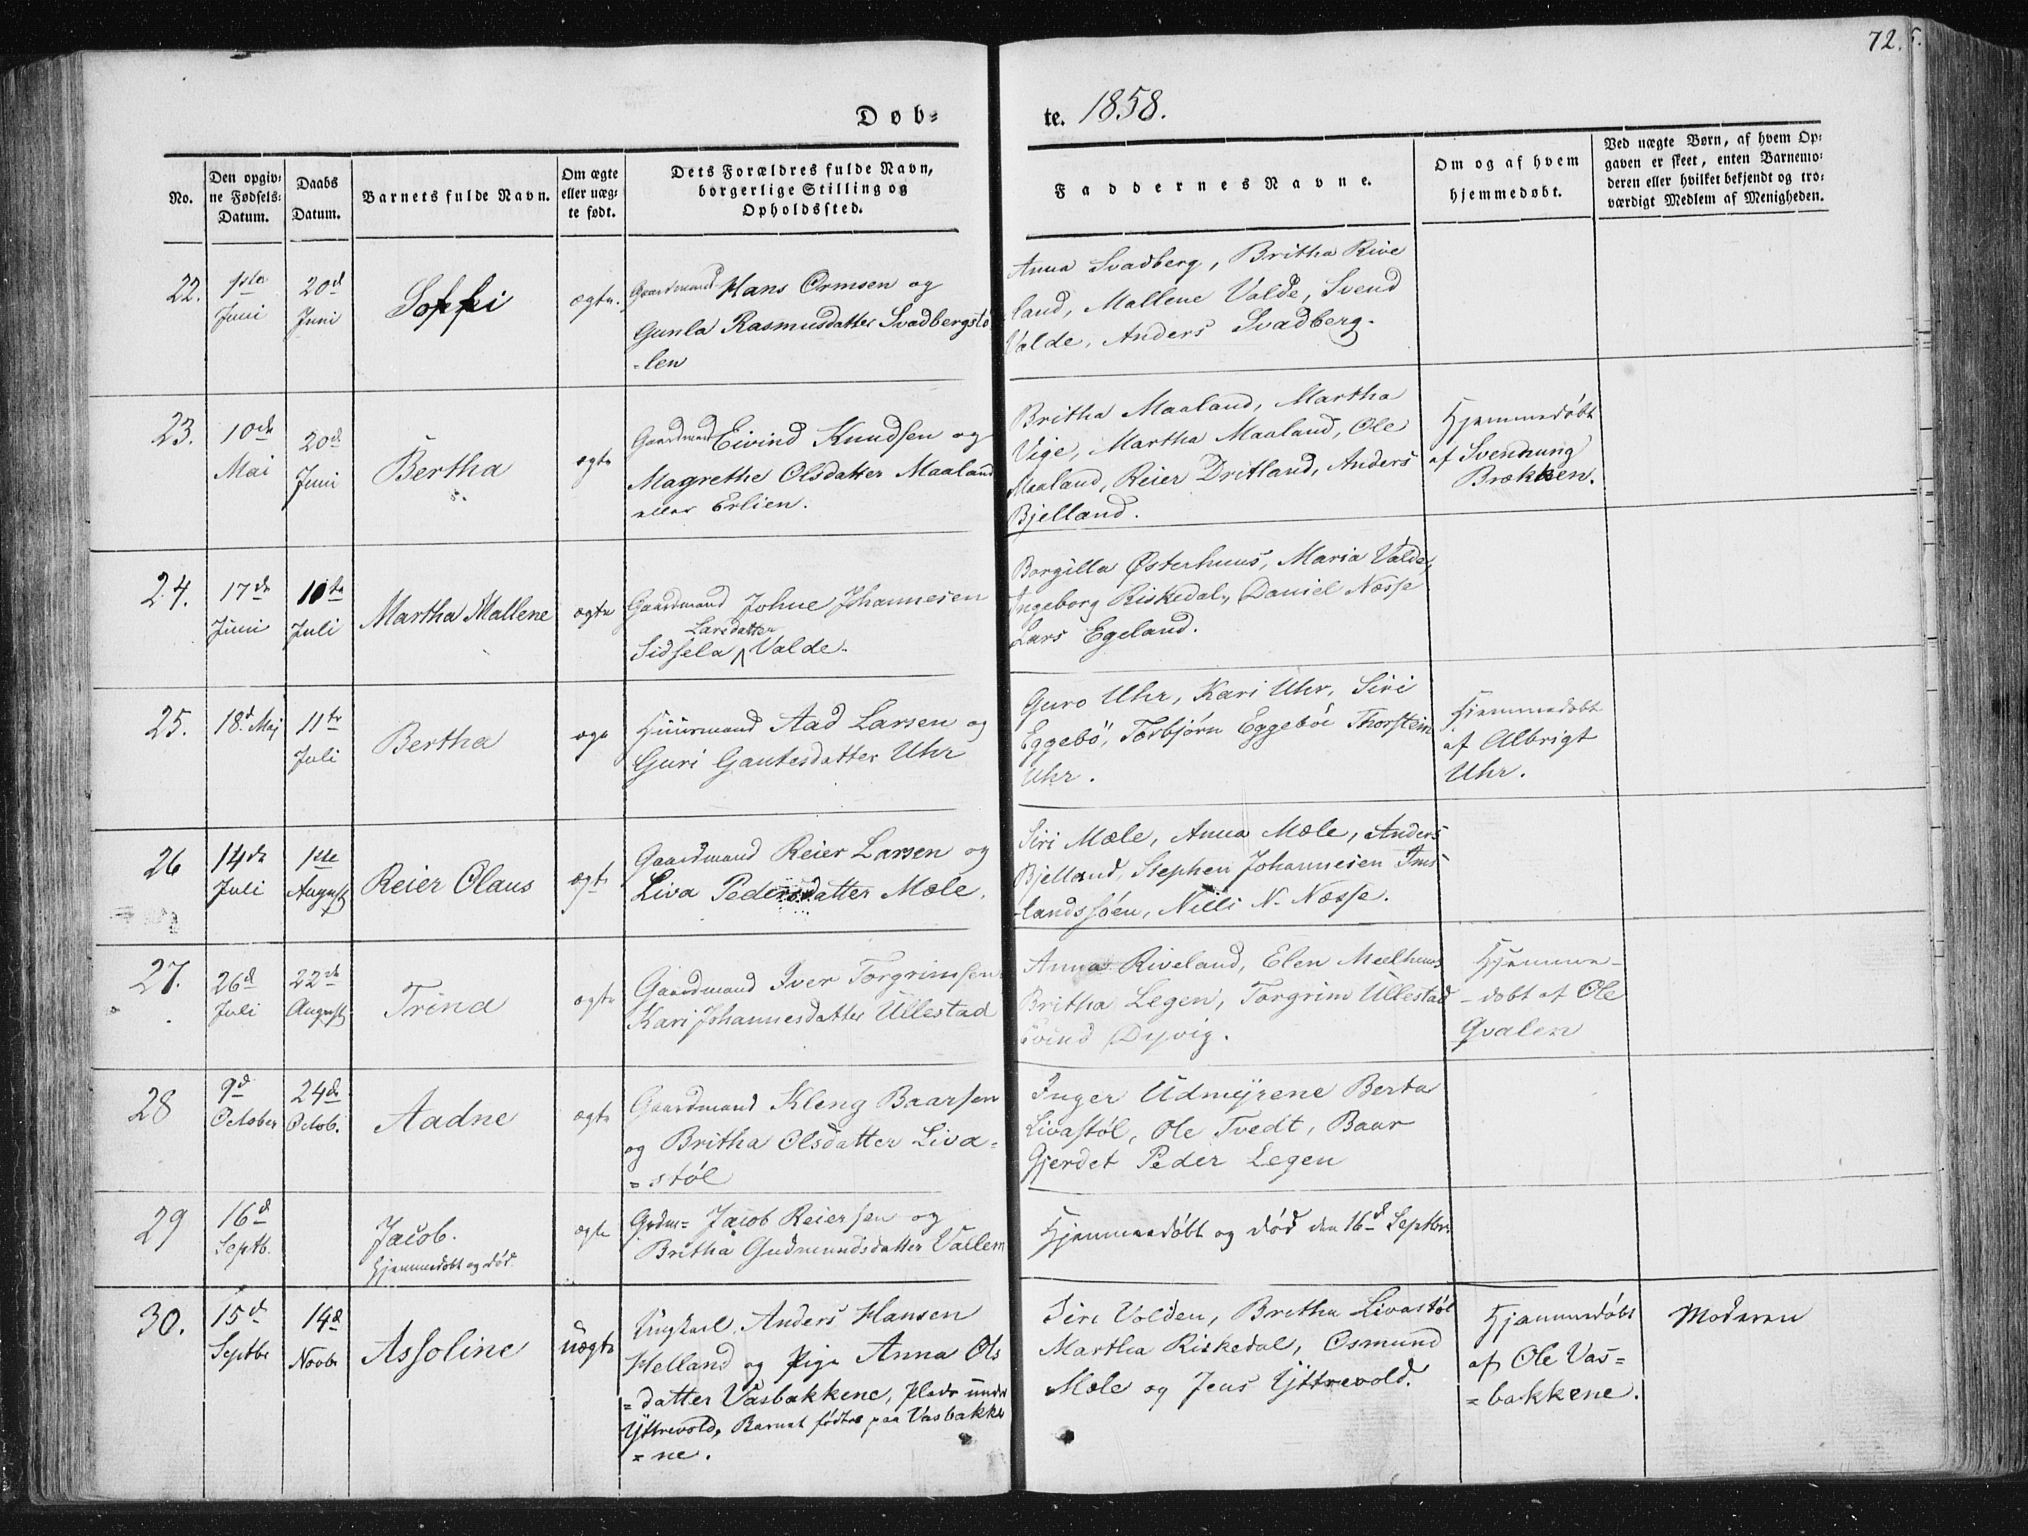 72.
Døb=
te. 1858.
No.
Den opgiv=
ne Fødsels=
Datum.
Daabs
Datum.
Barnets fulde Navn.
Om ægte
eller uæg=
te født.
Dets Forældres fulde Navn,
borgerlige Stilling og
Opholdssted.
Faddernes Navne.
Om og af hvem
hjemmedøbt.
Ved uægte Børn, af hvem Op=
gaven er skeet, enten Barnemo=
deren eller hvilket bekjendt og tro=
værdigt Medlem af Menigheden.
22.
1ste
Juni
20d
Juni
Soffi
ægte.
Gaardmand Hans Ormsen og
Gunla Rasmusdatter Svadbergstø
=len
Anna Svadberg, Britha Rive
land, Mallene Valde, Svend
Valde, Anders Svadberg.
23.
10de
Mai
20de
Juni
Bertha
ægte
Gaardmand Eivind Knudsen og
Magrethe Olsdatter Maaland
eller Erlien.
Britha Maaland, Martha
Vige, Martha Maaland, Ole
Maaland, Reier Dritland, Anders
Bjelland.
Hjemmedøbt
af Svendnung
Brækken.
24.
17de
Juni
10te
Juli
Martha Mallene
ægte
Gaardmand Johne Johannesen
Larsdatter
Sidsela Valde.
Borgilla Østerhuus, Maria Valde,
Ingeborg Riskedal, Daniel Næsse
Lars Egeland.
25.
18d Maj
11te
Juli
Bertha
Huusmand Aad Larsen og
Guri Gautesdatter Uhr
Guro Uhr, Kari Uhr, Siri
Eggebö, Torbjörn Eggeböe Thorstein
Uhr.
Hjemmedøbt
af Albrigt
Uhr.
26
14de
Juli
1ste
August
Reier Olaus
ægte
Gaardmand Reier Larsen og
Liva Pedersdatter Mæle.
Siri Mæle, Anna Mæle, Anders
Bjelland, Stephen Johannesen Ims
landssöen, Niels N. Næsse.
27.
26d
Juli
22de
August
Trina
ægte
Gaardmand Iver Torgrimsen
Kari Johannesdatter Ullestad
Anna Riveland, Elen Mælhuus
Britha Legen, Torgrim Ullestad
Eivind Dyvig.
Hjemme-
-døbt af Ole
Qvalen
28
9d
October
24de
Octob.
Aadne
ægte
Gaardmand Kleng Baarsen
og Britha Olsdatter Liva=
=støl
Inger Udmyrene Berta
Livastøl, Ole Tvedt, Baar
Gjerdet Peder Legen
29
16d
Septb.
Jacob.
Hjemmedøbt og død.
ægte
Grdm= Jacob Reiersen og
Britha Gudmundsdatter Vallem
Hjemmedøbt og død den 16d Septbr.
30.
15d
Septbr
14d
Novbr
Assoline
uægte
Ungkarl Anders Hansen
Helland og Pige Anna Ols
=datter Vasbakkene, Plads under
Yttrevold, Barnet fødtes paa Vasbakke
=ne.
Siri Volden, Britha Livastøl
Martha Riskedal, Osmund
Mæle og Jens Yttrevold.
Hjemmedøbt
af Ole Vas=
=bakkene.
Moderen